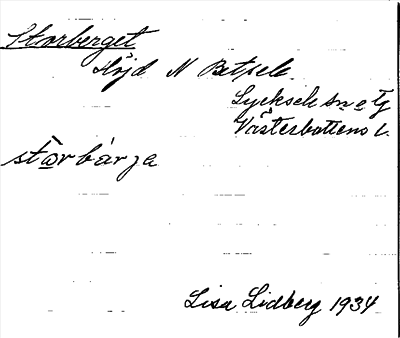 Storberget
Höjd N Betsele
Lycksele sn o Tg
Västerbottens l.
stơrbárja
Lisa Lidberg 1934